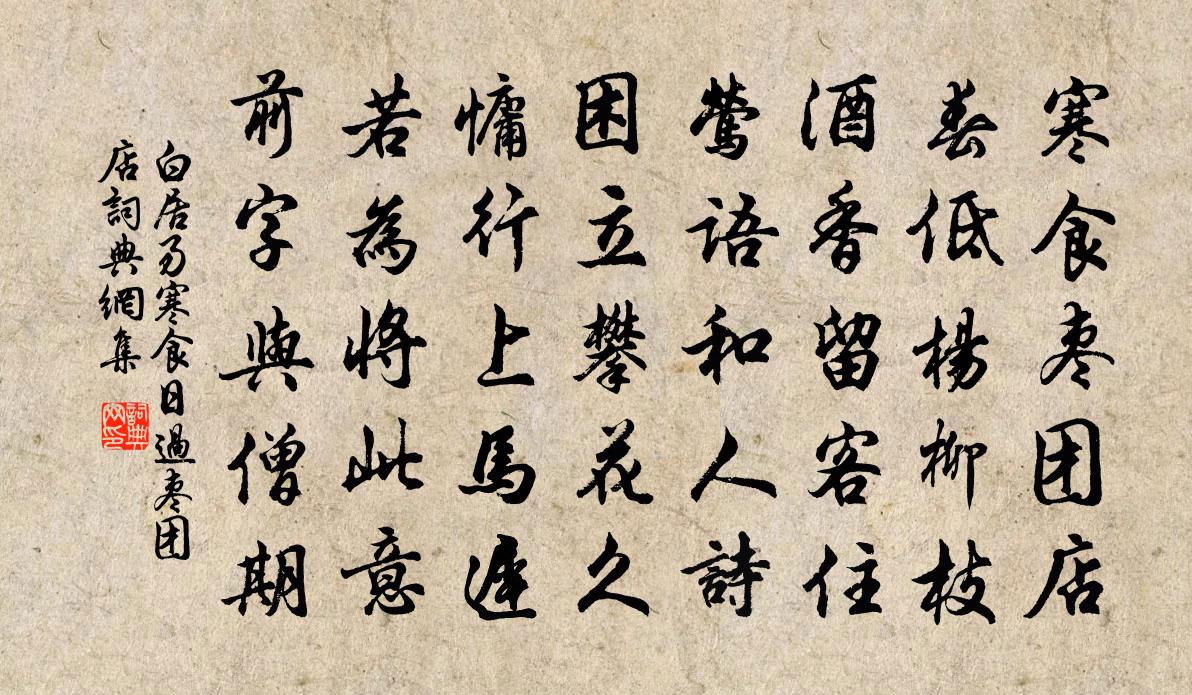 寒食枣团店
春低楊柳枝
酒香留客住
鶯語和人詩
困立攀花久
慵行上馬遲
若為將此意
前字與僧期
白居易寒食日過枣团
店詞典網集
詞典
网印